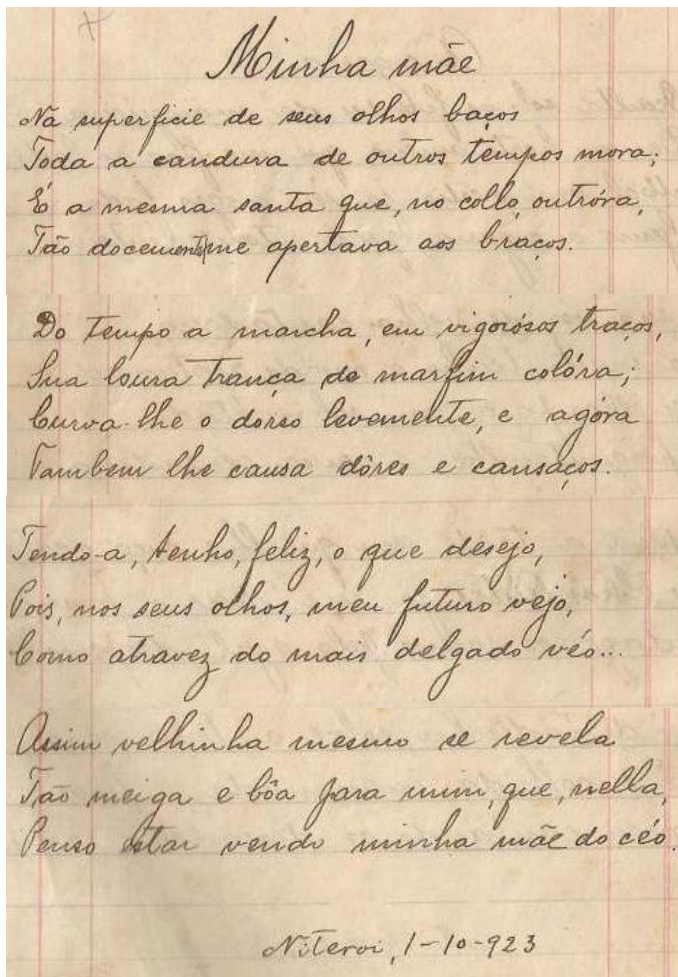 Minha mãe
Na superficie de seus olhos baços
Toda a candura de outros tempos mora;
É a mesma santa que, no collo, outróra,
Tão docemente me apertava aos braços.
Do tempo a marcha, em vigorósos traços,
Sua loura trança de marfim colóra;
Curva-lhe o dorso levemente, e agóra
Tambem lhe causa dôres e cansaços.
Tendo-a, tenho, feliz, o que desejo,
Pois, nos seus olhos, meu futuro vejo,
Como atravez do mais delgado véo...
Assim velhinha mesmo se revela
Tão meiga e bôa para mim, que, nella,
Penso estar vendo minha mãe do céo.
Niteroi, 1-10-923